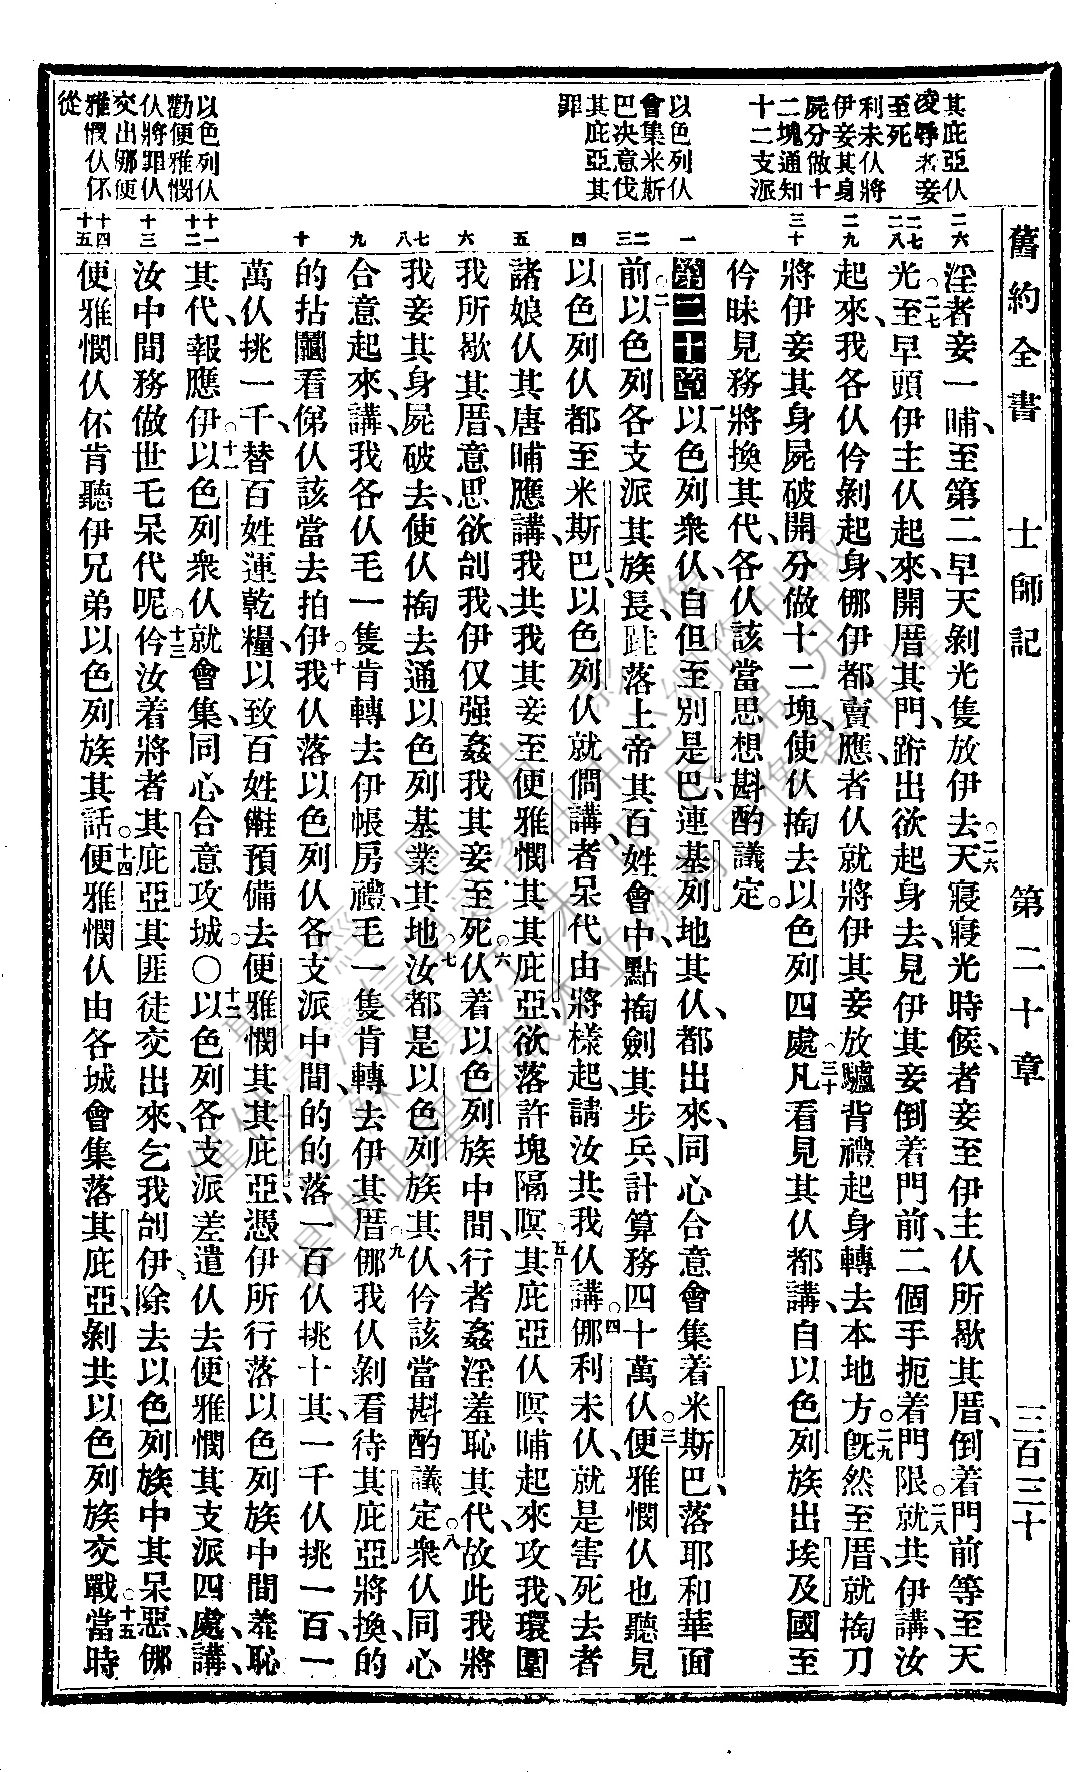 舊約全書　士師記　第二十章　三百三十
其庇亞仈
凌辱者妾
至死
利未仈將
伊妾其身
屍分做十
二塊通知
十二支派
以色列仈
會集米斯
巴決意伐
其庇亞其
罪
以色列仈
勸便雅憫
仈將罪仈
交出娜便
雅憫仈伓
從
二六
二七
二八
二九
三十
一
二
三
四
五
六
七
八
九
十
十一
十二
十三
十四
十五
淫者妾一晡、至第二早天剝光隻放伊去。二六天寢寢光時候、者妾至伊主仈所歇其厝、倒着門前等至天
光。二七至早頭伊主仈起來、開厝其門、跨出欲起身去、見伊其妾倒着門前、二個手扼着門限。二八就共伊講、汝
起來、我各仈仱剝起身、娜伊都賣應、者仈就將伊其妾放驢背禮起身轉去本地方。二九旣然至厝、就掏刀
將伊妾其身屍破開、分做十二塊、使仈掏去以色列四處。三十凡看見其仈都講、自以色列族出埃及國至
仱昧見務將換其代、各仈該當思想斟酌議定。
第二十章　一以色列衆仈、自但至別是巴、連基列地其仈、都出來、同心合意會集着米斯巴落耶和華面
前。二以色列各支派其族長、跬落上帝其百姓會中、點掏劍其步兵、計算務四十萬仈。三便雅憫仈也聽見
以色列仈都至米斯巴、以色列仈就僩講、者呆代由將樣起、請汝共我仈講。四娜利未仈、就是害死去者
諸娘仈其唐晡應講、我共我其妾至便雅憫其其庇亞、欲落許塊隔暝。五其庇亞仈暝晡起來攻我、環圍
我所歇其厝、意思欲刣我、伊仅强姦我其妾至死。六仈着以色列族中間、行者姦淫羞恥其代、故此我將
我妾其身屍破去、使仈掏去通以色列基業其地。七汝都是以色列族其仈、仱該當斟酌議定。八衆仈同心
合意起來、講、我各仈毛一隻肯轉去伊帳房禮、毛一隻肯轉去伊其厝。九娜我仈剝看待其庇亞將換、的
的拈鬮看俤仈該當去拍伊。十我仈落以色列仈各支派中間、的的落一百仈挑十其、一千仈挑一百、一
萬仈挑一千、替百姓運乾糧、以致百姓㑲預備去便雅憫其其庇亞、憑伊所行落以色列族中間羞恥
其代、報應伊。十一以色列衆仈就會集、同心合意攻城。〇十二以色列各支派差遣仈去便雅憫其支派四處講、
汝中間務做世乇呆代呢。十三仱汝着將者其庇亞其匪徒交出來、乞我刣伊、除去以色列族中其呆惡、娜
便雅憫仈伓肯聽伊兄弟以色列族其話。十四便雅憫仈由各城會集落其庇亞、剝共以色列族交戰。十五當時